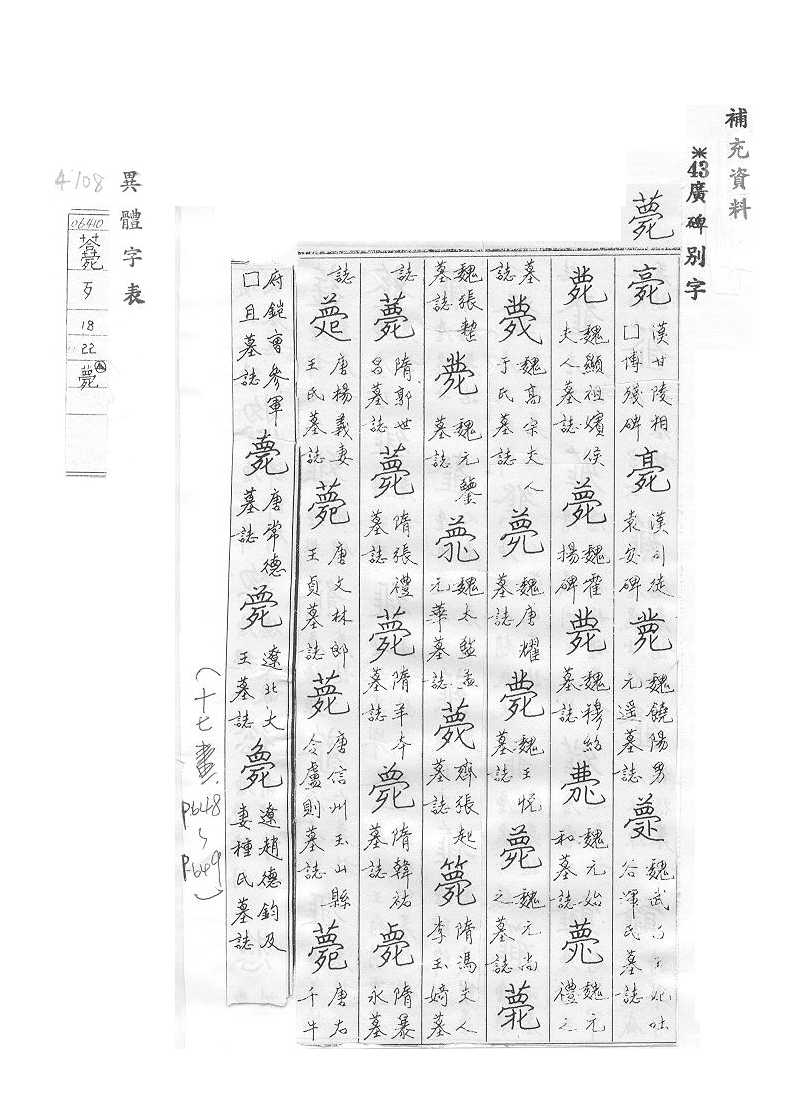 補充資料
*43廣碑別字
薨
薨 漢甘陵相□博殘碑 薨 漢司徒袁安碑 薨 魏饒陽男元遥墓誌 薨 魏武
谷渾氏墓誌
薨 魏顯祖嬪侯夫人墓誌 薨 魏霍揚碑 薨 魏穆紹墓誌 薨 魏元始和墓誌 薨 魏元禮之
墓誌 薨 魏高宗夫人于氏墓誌 薨 魏唐耀墓誌 薨 魏王悦墓誌 薨 魏元尚之墓誌 薨
魏張整墓誌 薨 魏元鑒墓誌 薨 魏太監孟元華墓誌 薨 齊張起墓誌 薨 隋馮夫人李玉婍墓
誌 薨 隋郭世昌墓誌 薨 隋張禮墓誌 薨 隋羊本墓誌 薨 隋韓祐墓誌 薨 隋暴永墓
誌 薨 唐楊義妻王氏墓誌 薨 唐文林郎王貞墓誌 薨 唐信州玉山縣令盧則墓誌 薨 唐右千牛
府鎧曹參軍□且墓誌 薨 唐常德墓誌 薨 遼北大王墓誌 薨 遼趙德鈞及妻種氏墓誌
(十七畫 P648~P649)
異體字表
4108
06410
薨
歹
18
22
薨